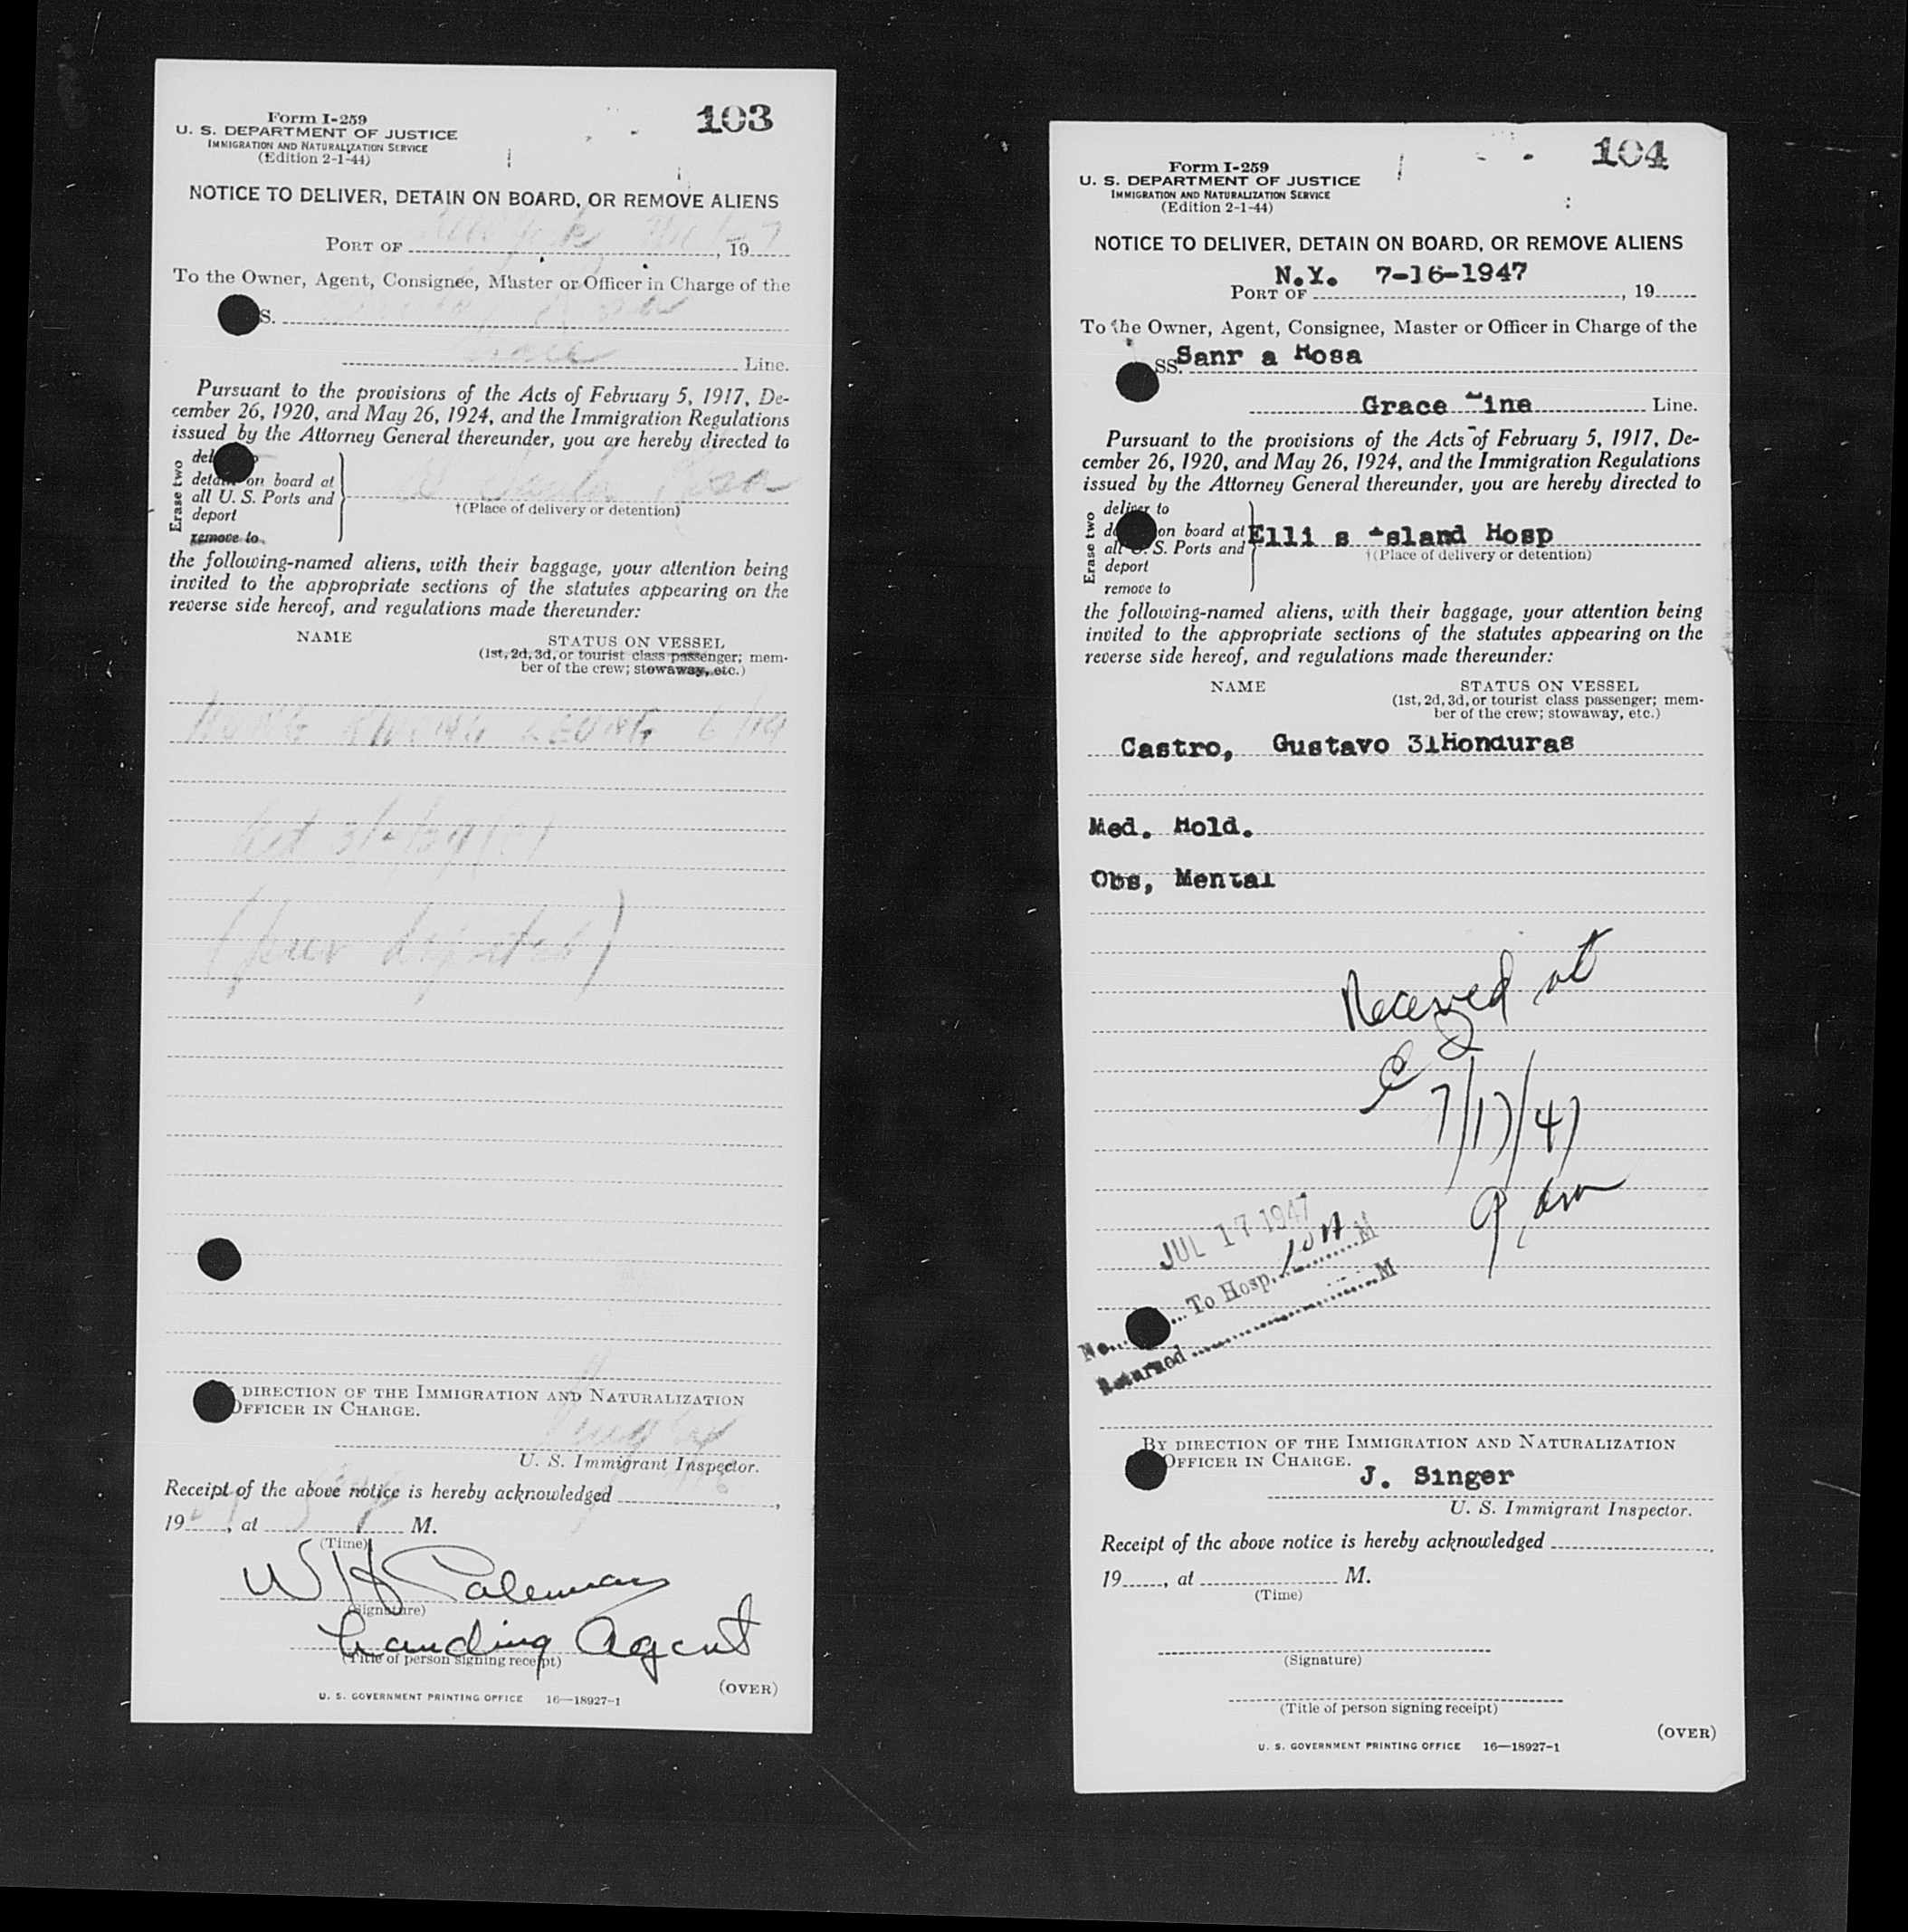 103
Form I-259
U. S. DEPARTMENT OF JUSTICE
IMMIGRATION AND NATURALIZATION SERVICE
(Edition 2-1-44)
NOTICE TO DELIVER, DETAIN ON BOARD, OR REMOVE ALIENS
PORT OF New York, 19
To the Owner, Agent, Consignee, Master or Officer in Charge of the
S.
Grace Line.
Pursuant to the provisions of the Acts of February 5, 1917, De-
cember 26, 1920, and May 26, 1924, and the Immigration Regulations
issued by the Attorney General thereunder, you are hereby directed to
Erase two
del o
detain on board at
all U. S. Ports and
deport
remove to
SS Santa Rosa
†(Place of delivery or detention)
the following-named aliens, with their baggage, your attention being
invited to the appropriate sections of the statutes appearing on the
reverse side hereof, and regulations made thereunder:
NAME
STATUS ON VESSEL
(1st, 2d, 3d, or tourist class passenger; mem-
ber of the crew; stowaway, etc.)
(prev deported)
DIRECTION OF THE IMMIGRATION AND NATURALIZATION
OFFICER IN CHARGE.
U. S. Immigrant Inspector.
Receipt of the above notice is hereby acknowledged ,
19 , at M.
(Time)
W H
(Signature)
Landing Agent
(Title of person signing receipt)
(OVER)
U. S. GOVERNMENT PRINTING OFFICE 16—18927-1
104
Form I-259
U. S. DEPARTMENT OF JUSTICE
IMMIGRATION AND NATURALIZATION SERVICE
(Edition 2-1-44)
NOTICE TO DELIVER, DETAIN ON BOARD, OR REMOVE ALIENS
N.Y. 7-16-1947
PORT OF , 19
To the Owner, Agent, Consignee, Master or Officer in Charge of the
SS. Sanr a Rosa
Grace Line Line.
Pursuant to the provisions of the Acts of February 5, 1917, De-
cember 26, 1920, and May 26, 1924, and the Immigration Regulations
issued by the Attorney General thereunder, you are hereby directed to
Erase two
deliver to
de on board at
all U. S. Ports and
deport
remove to
Elli s Island Hosp
†(Place of delivery or detention)
the following-named aliens, with their baggage, your attention being
invited to the appropriate sections of the statutes appearing on the
reverse side hereof, and regulations made thereunder:
NAME
STATUS ON VESSEL
(1st, 2d, 3d, or tourist class passenger; mem-
ber of the crew; stowaway, etc.)
Castro, Gustavo 31Honduras
Med. Hold.
Obs, Mental
Received at
E I
7/17/47
9 am
JUL 17 1947
No. To Hosp. 10 A M
Returned M
BY DIRECTION OF THE IMMIGRATION AND NATURALIZATION
OFFICER IN CHARGE.
J. Singer
U. S. Immigrant Inspector.
Receipt of the above notice is hereby acknowledged ,
19 , at M.
(Time)
(Signature)
(Title of person signing receipt)
(OVER)
U. S. GOVERNMENT PRINTING OFFICE 16—18927-1